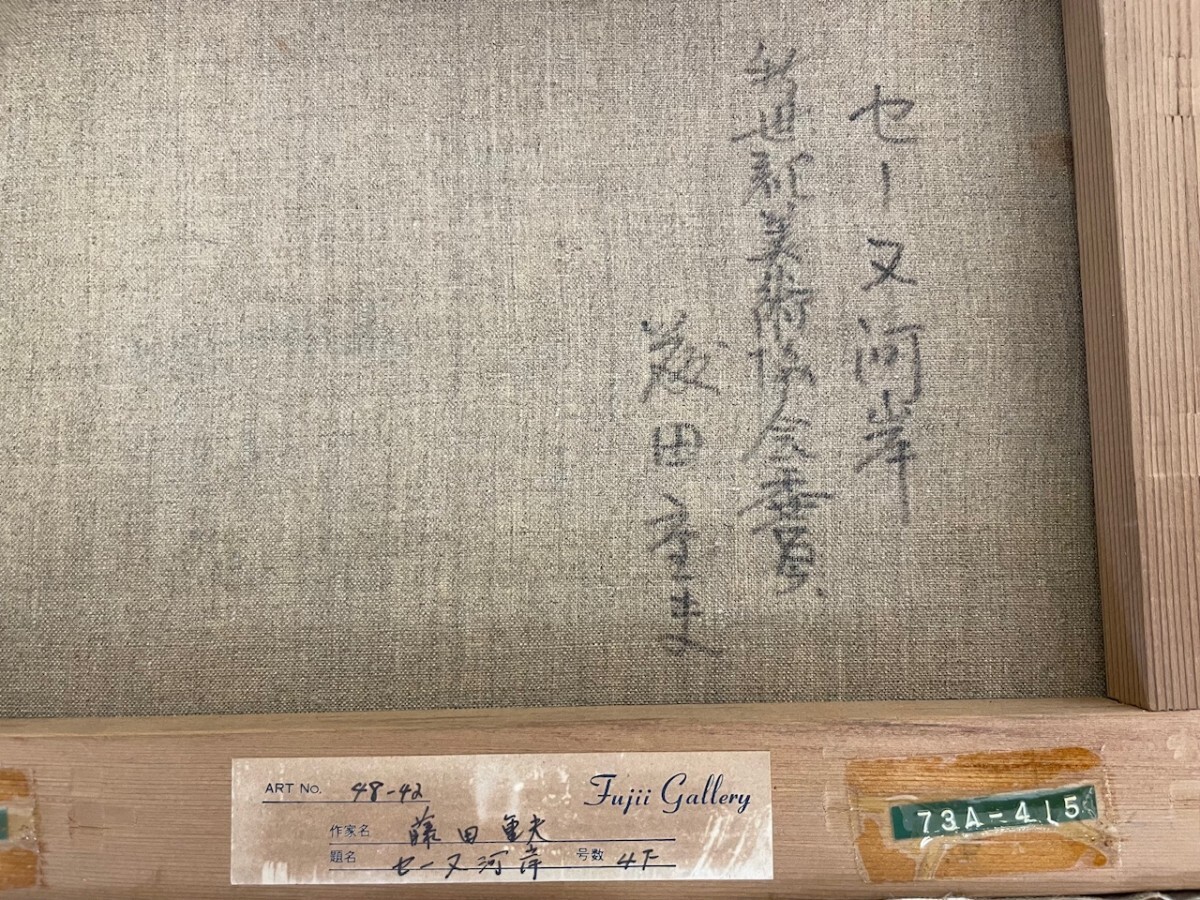 セーヌ河岸
新世紀美術協会委員
藤田
ART No. 48-42
Fujii Gallery
作家名 藤田
題名 セーヌ河岸 号数 4F
73A-415